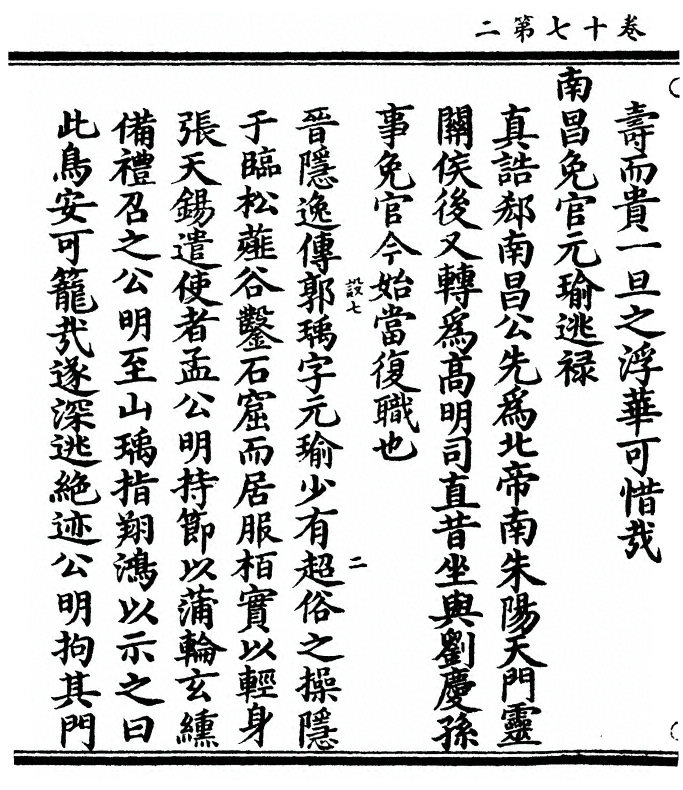 卷十七第二
壽而貴一旦之浮華可惜哉
南昌免官元瑜逃禄
真誥郄南昌公先爲北帝南朱陽天門靈
關侯後又轉爲髙明司直昔坐與劉慶孫
事免官今始當復職也
晉隱逸傳郭瑀字元瑜少有超俗之操隱
設七
二
于臨松薤谷鑿石窟而居服栢實以輕身
張天錫遣使者孟公明持節以蒲輪玄纁
備禮召之公明至山瑀指翔鴻以示之曰
此鳥安可籠㦲遂深逃絶迹公明拘其門